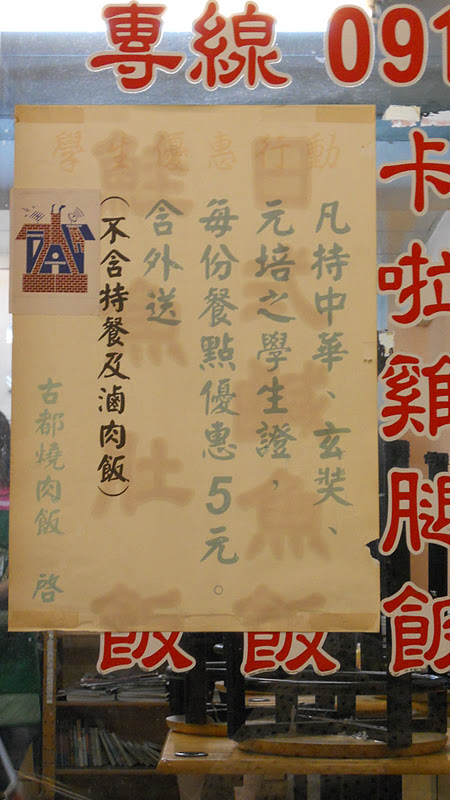 專線 091
卡啦雞腿飯
學生優惠行動
凡持中華、玄奘、
元培之學生證，
每份餐點優惠5元。
含外送
(不含特餐及滷肉飯)
古都燒肉飯 啓
日式鹹魚飯
鮭魚肚飯